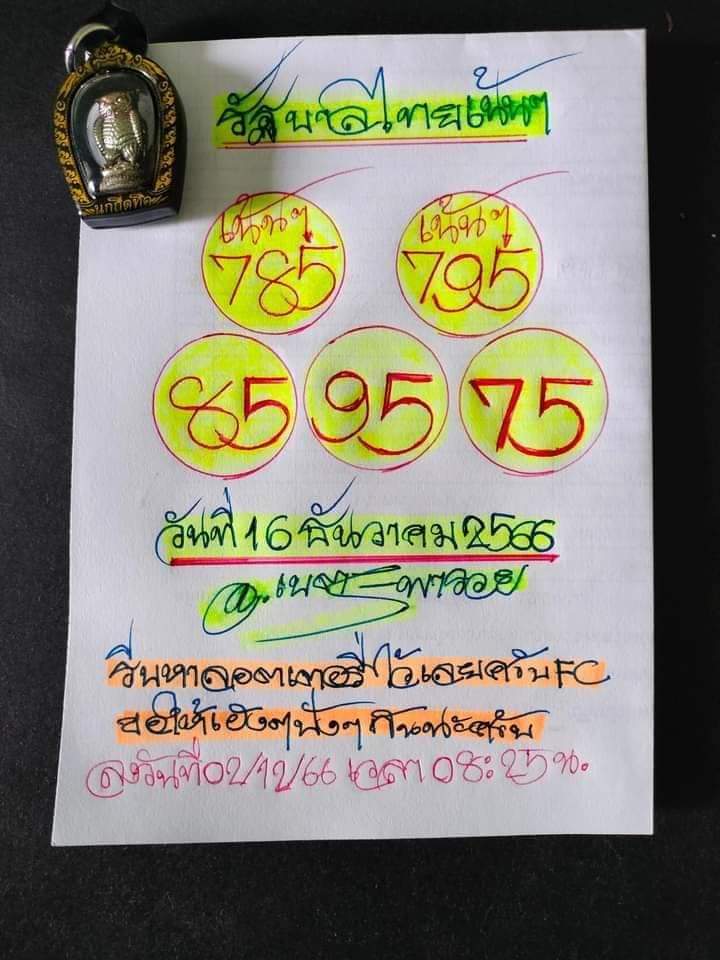 นกฮูกทิด
รัฐบาลไทยเน้นๆ
เน้นๆ
785
เน้นๆ
795
85
95
75
วันที่ 16 ธันวาคม 2566
พารวย
รีบหาลอตเตอรี่ไว้เลยครับ FC
ขอให้เฮงๆปังๆ กันนะครับ
ลงวันที่ 02/12/66 เวลา 08:25 น.